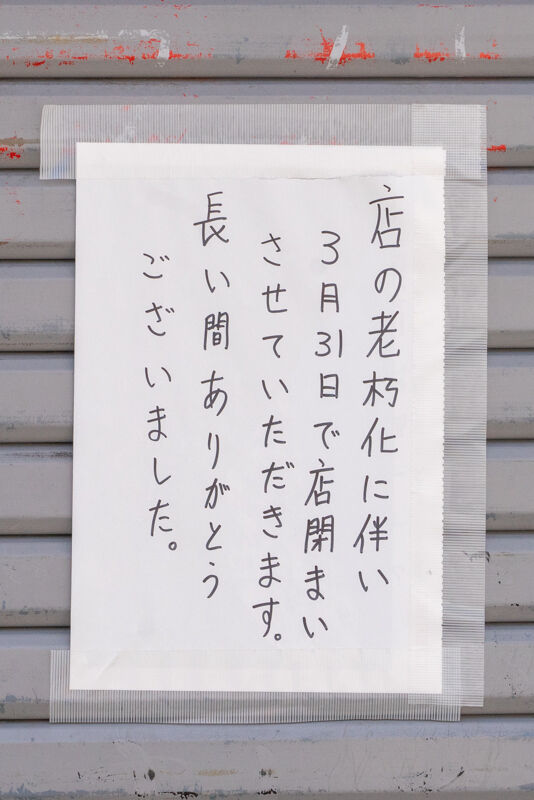 店の老朽化に伴い
3月31日で店閉まい
させていただきます。
長い間ありがとう
ございました。